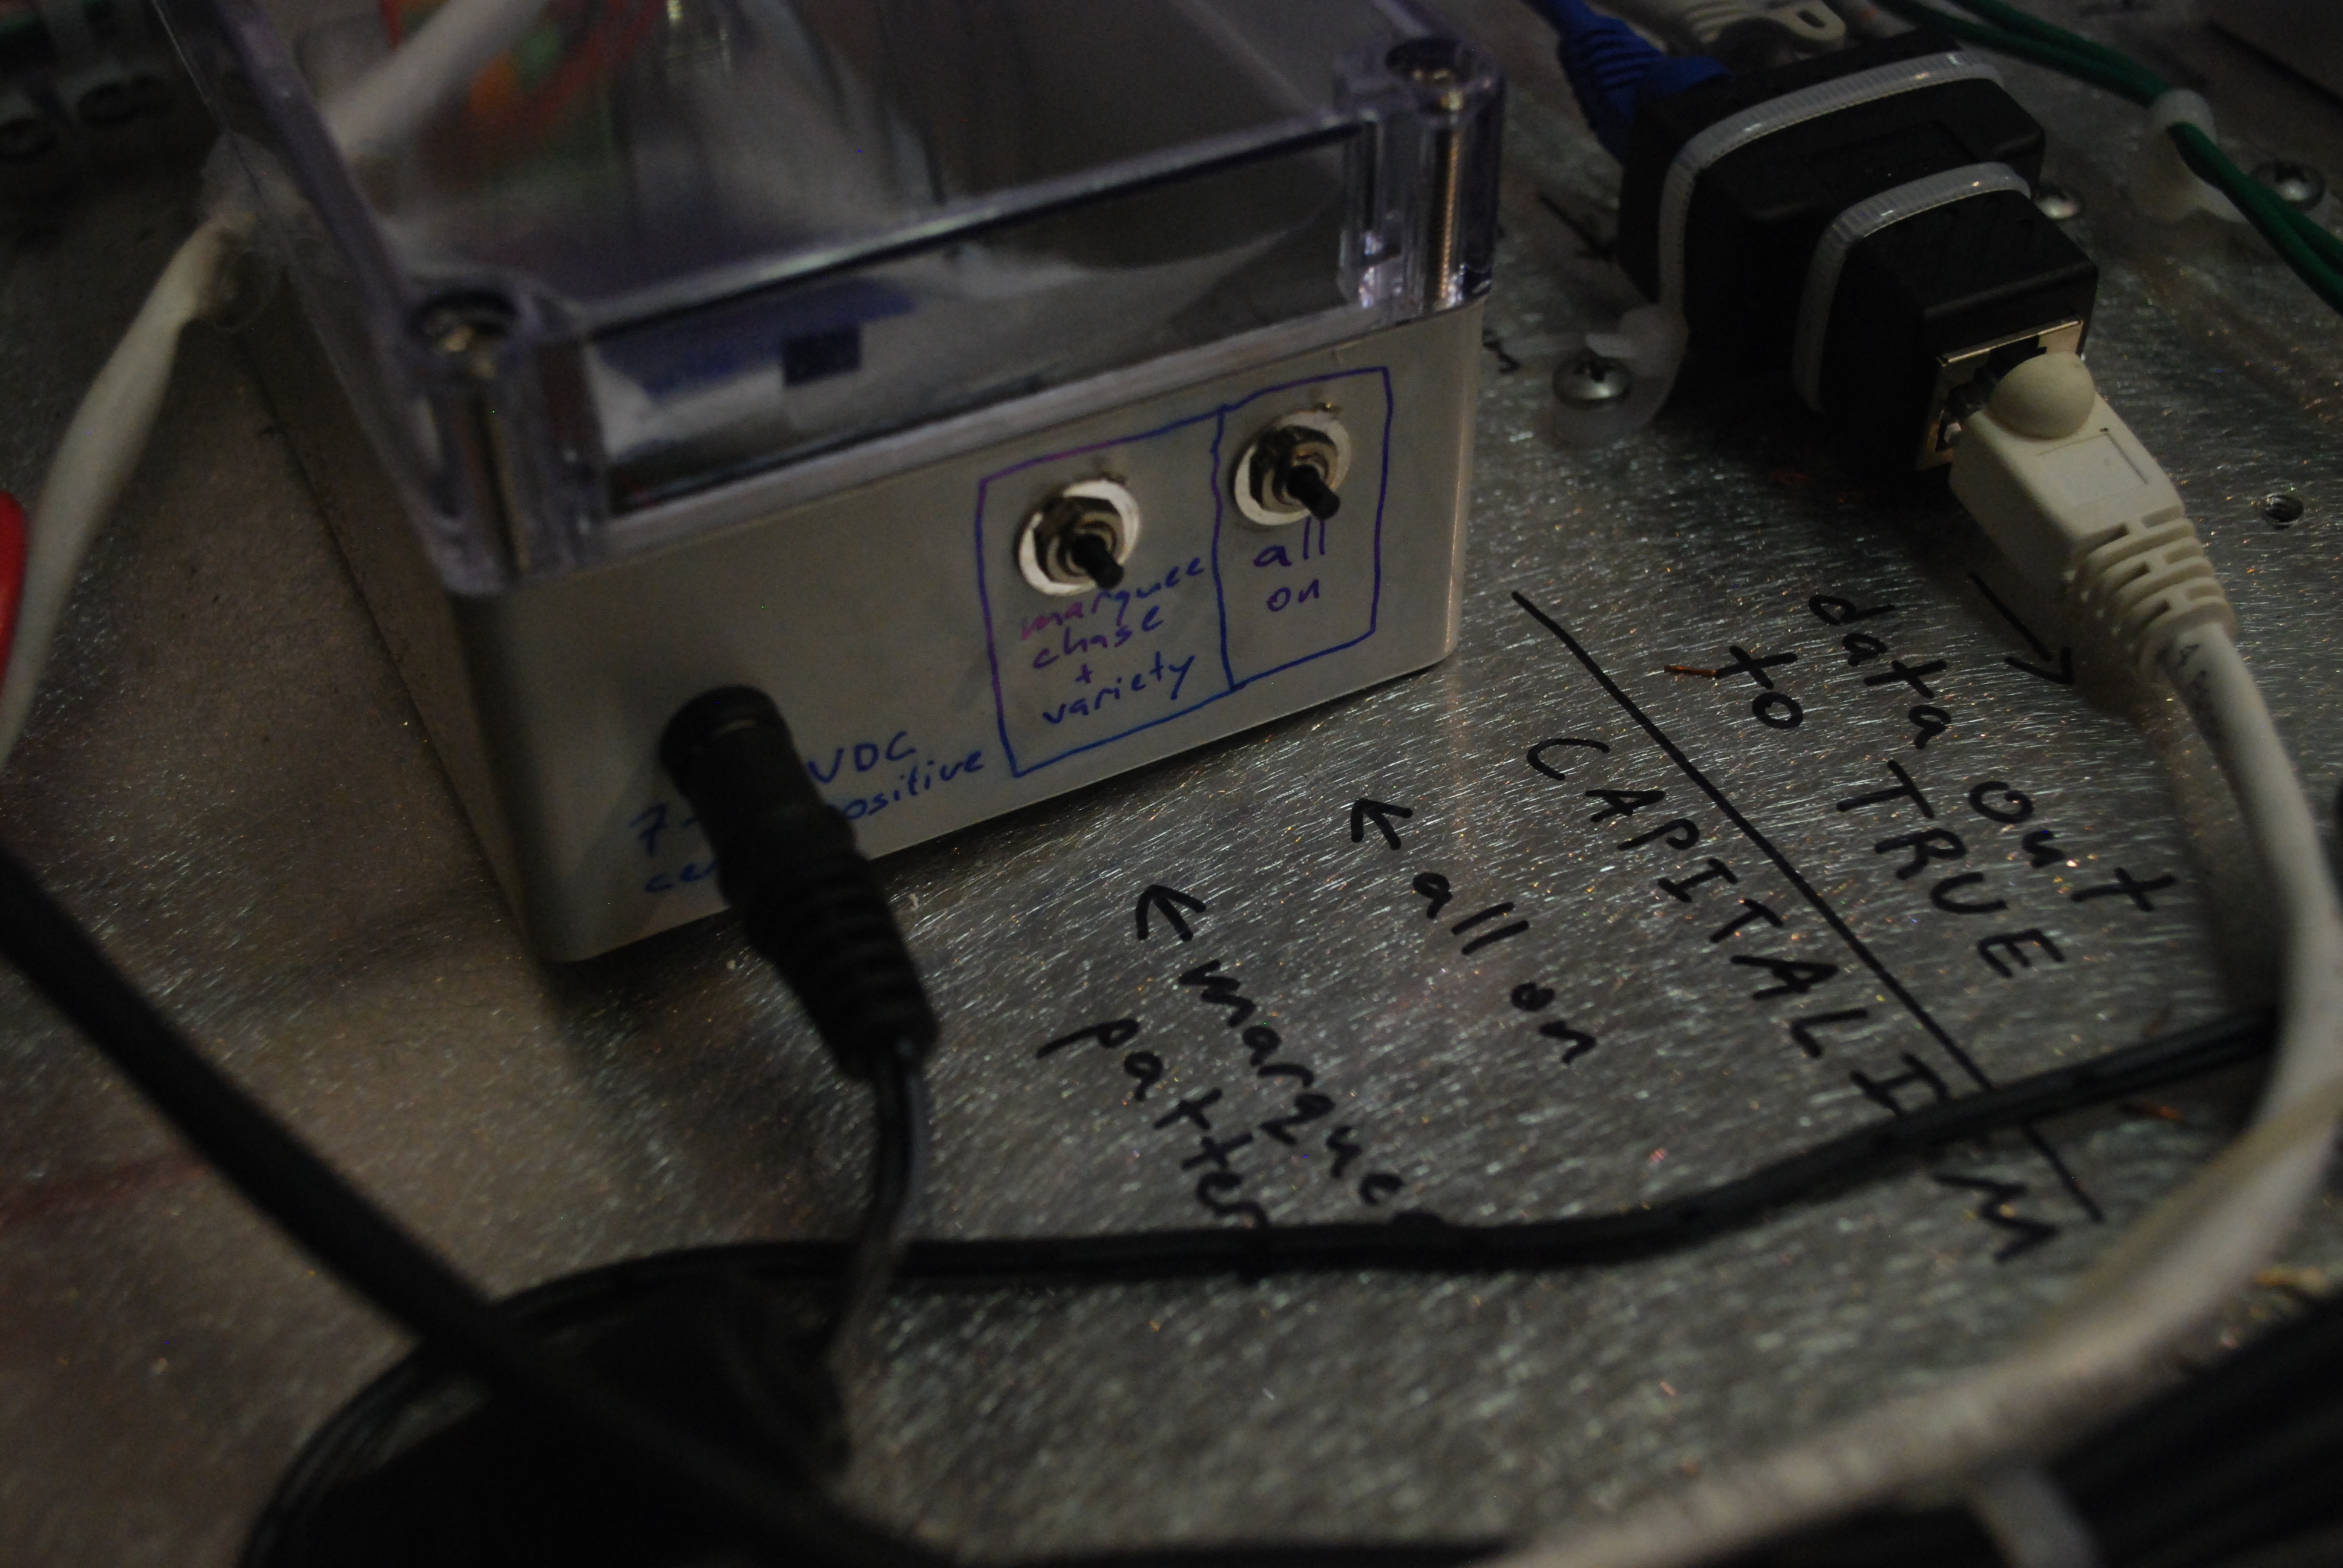 marquee
chase
+
variety
all
on
VDC
7-
data out
to TRUE
CAPITALISM
all on
marque
patter